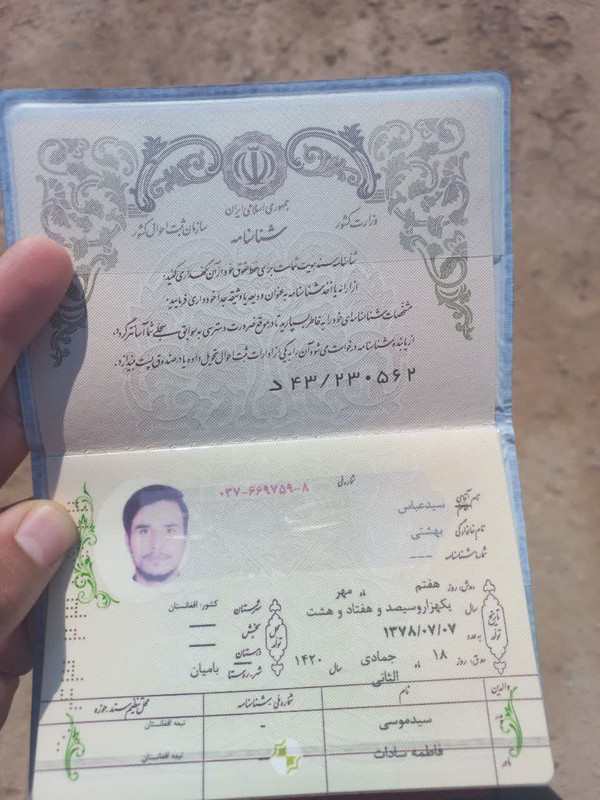 جمهوری اسلامی ایران
وزارت کشور
سازمان ثبت احوال کشور
شناسنامه
شناسنامه سند هویت شماست برای حفظ حقوق خود از آن نگهداری کنید.
از ارائه یا اخذ شناسنامه به عنوان ودیعه یا وثیقه جداً خودداری فرمایید.
مشخصات شناسنامه‌ای خود را به خاطر بسپارید تا در مواقع ضرورت دسترسی به سوابق سجلی شما آسانتر گردد.
از یابنده شناسنامه درخواست می‌شود آن را به یکی از ادارات ثبت احوال تحویل داده یا در صندوق پست بیندازد.
د ۴۳/۲۳۰۵۶۲
شماره ملی
۰۳۷-۶۶۹۷۵۹-۸
نام آقای سیدعباس
نام خانوادگی بهشتی
شماره شناسنامه ---
تاریخ تولد
ه‍.ش: روز هفتم ماه مهر
سال یکهزاروسیصد و هفتاد و هشت
به عدد ۱۳۷۸/۰۷/۰۷
ه‍.ق: روز ۱۸ ماه جمادی الثانی سال ۱۴۲۰
محل تولد
شهرستان کشور: افغانستان
بخش —
دهستان —
شهر، روستا بامیان
والدین نام شماره ملی / شناسنامه محل تنظیم سند، حوزه
پدر سیدموسی - تبعه افغانستان
مادر فاطمه سادات - تبعه افغانستان